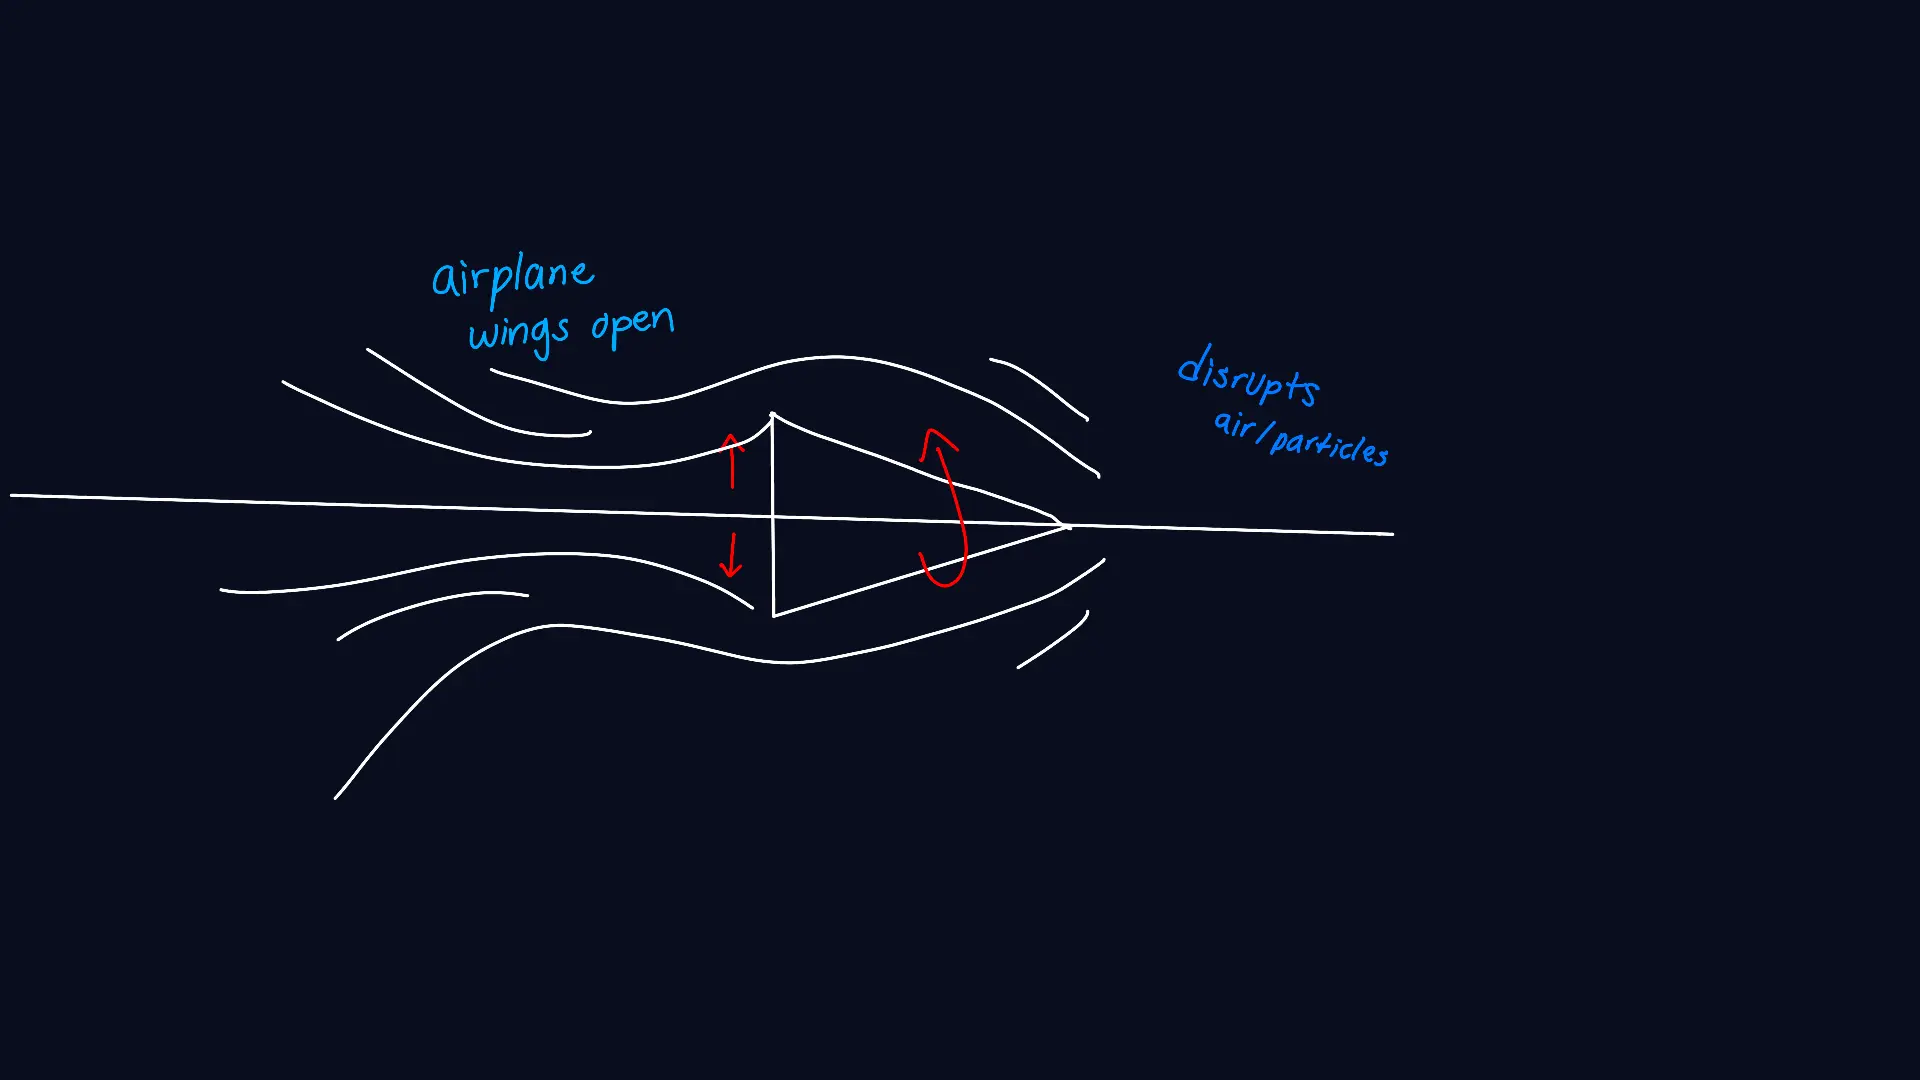 airplane
wings open
disrupts
air/particles